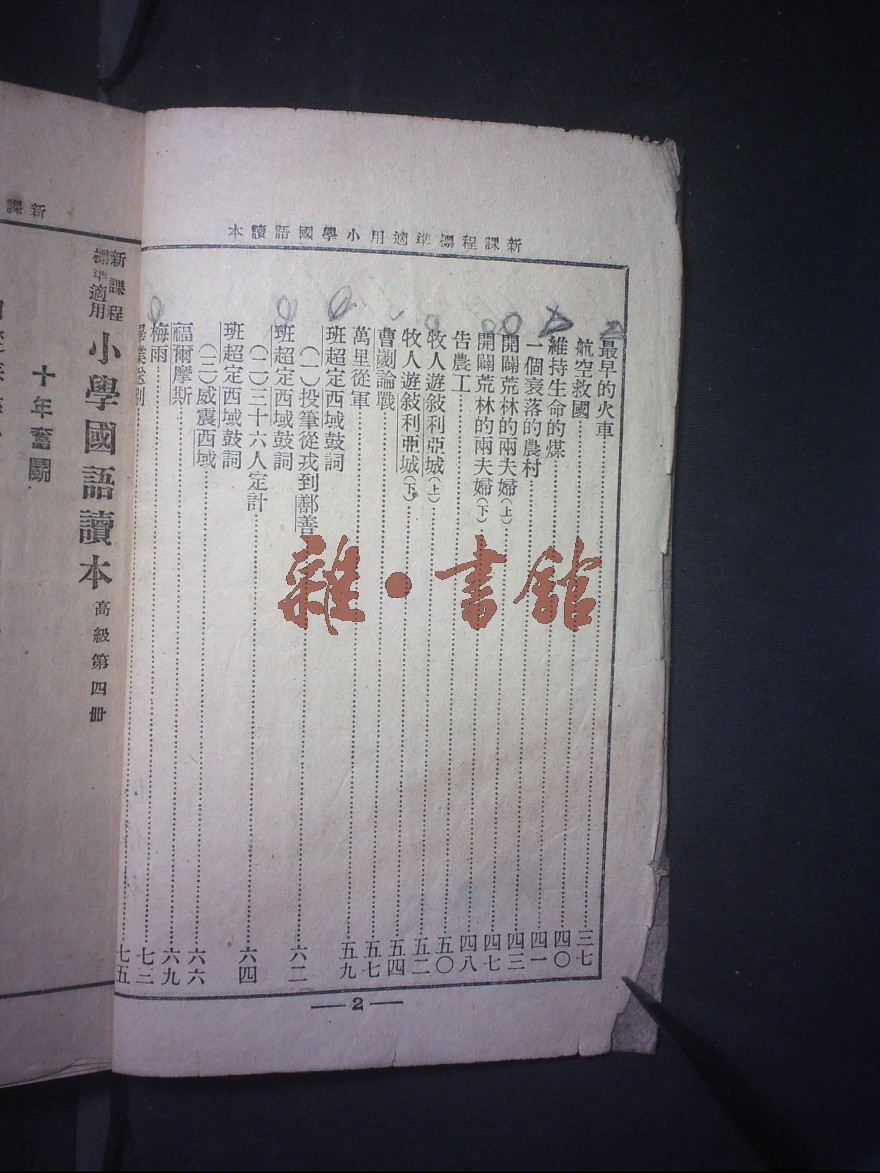 新課程標準適用小學國語讀本
最早的火車……三七
航空救國……四〇
維持生命的煤……四一
一個衰落的農村……四三
開闢荒林的兩夫婦(上)……四七
開闢荒林的兩夫婦(下)……四八
告農工……五〇
牧人遊敍利亞城(上)……五二
牧人遊敍利亞城(下)……五四
曹劌論戰……五七
萬里從軍……五九
班超定西域鼓詞
(一)投筆從戎到鄯善……六二
班超定西域鼓詞
(二)三十六人定計……六四
班超定西域鼓詞
(三)威震西域……六六
福爾摩斯……六九
梅雨……七三
畢業送別……七五
—2—
雜·書館
新課
新課程標準適用
小學國語讀本 高級第四冊
十年奮鬭